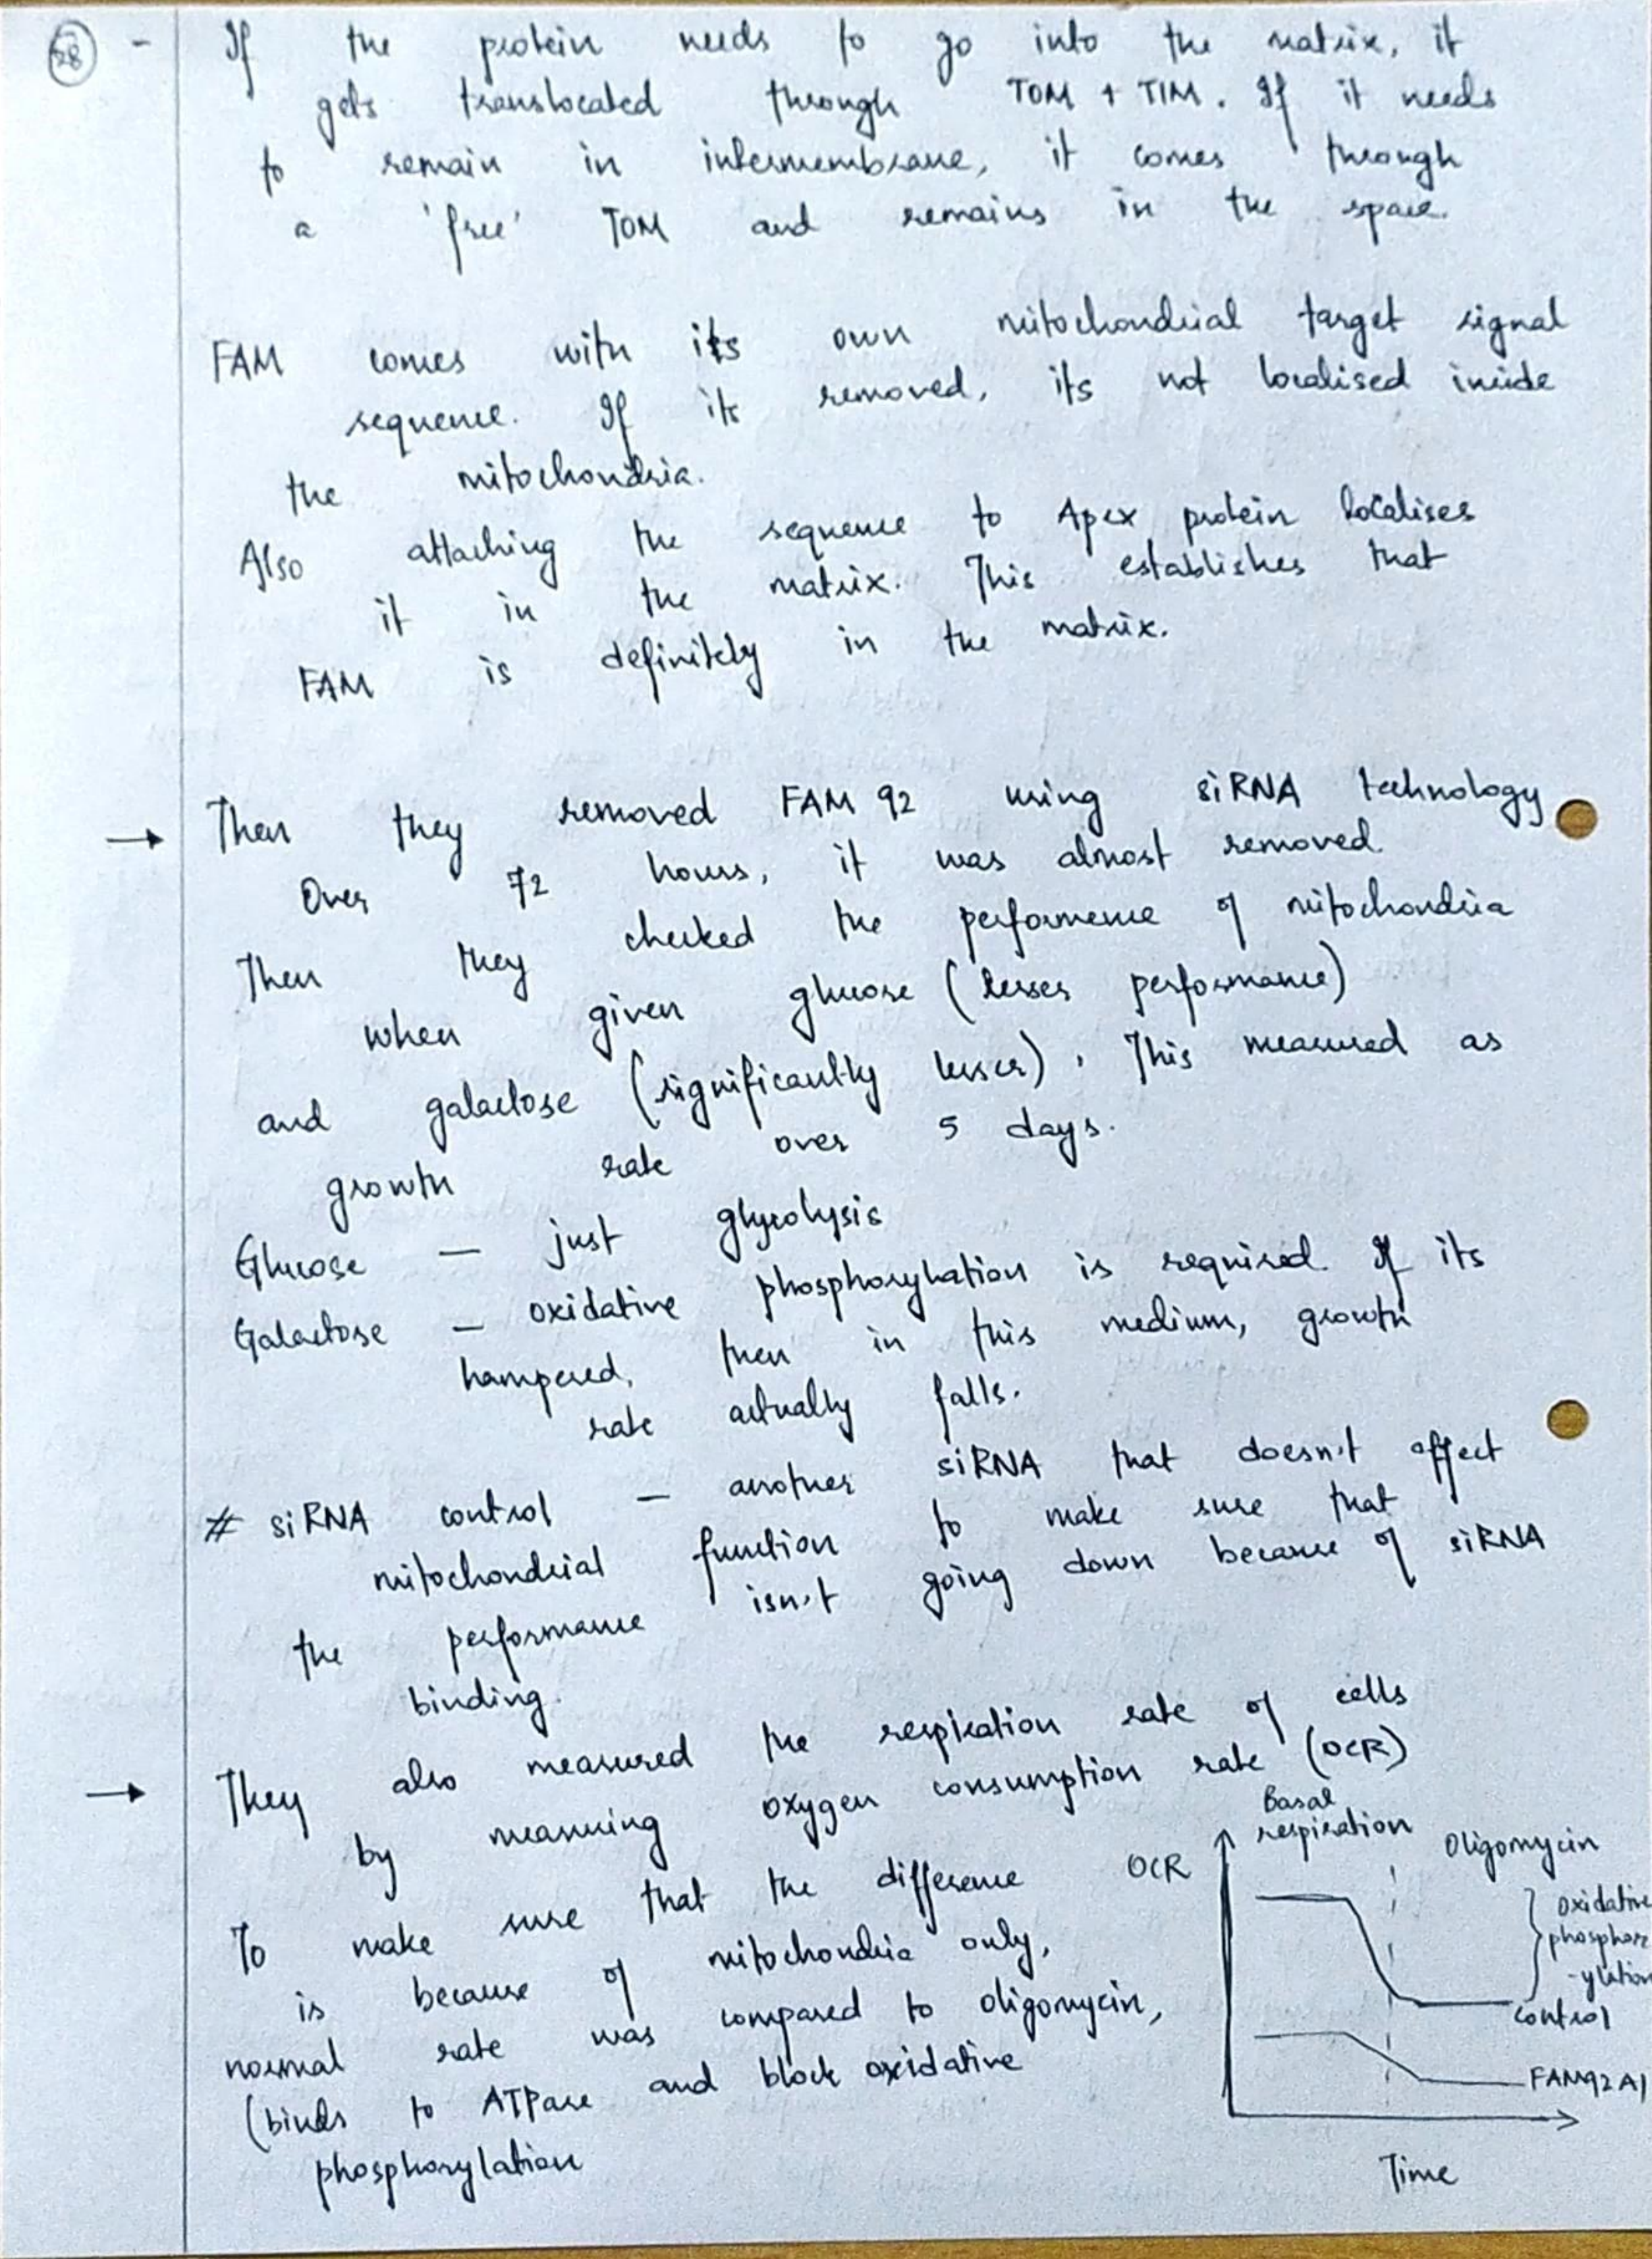 28 - If the protein needs to go into the matrix, it
gets translocated through TOM + TIM. If it needs
to remain in intermembrane, it comes through
a 'free' TOM and remains in the space.
FAM comes with its own mitochondrial target signal
sequence. If its removed, its not localised inside
the mitochondria.
Also attaching the sequence to Apex protein localises
it in the matrix. This establishes that
FAM is definitely in the matrix.
→ Then they removed FAM 92 using siRNA technology
Over 72 hours, it was almost removed.
Then they checked the performence of mitochondria
when given glucose (lesser performance)
and galactose (significantly lesser). This measured as
growth rate over 5 days.
Glucose — just glycolysis
Galactose — oxidative phosphorylation is required. If its
hampered, then in this medium, growth
rate actually falls.
# siRNA control — another siRNA that doesn't affect
mitochondrial function to make sure that
the performance isn't going down because of siRNA
binding.
→ They also measured the respiration rate of cells
by measuring oxygen consumption rate (OCR)
To make sure that the difference
is because of mitochondria only,
normal rate was compared to oligomycin,
(binds to ATPase and block oxidative
phosphorylation
Basal
respiration
Oligomycin
OCR
oxidative
phosphor
-ylation
control
FAM92A1
Time